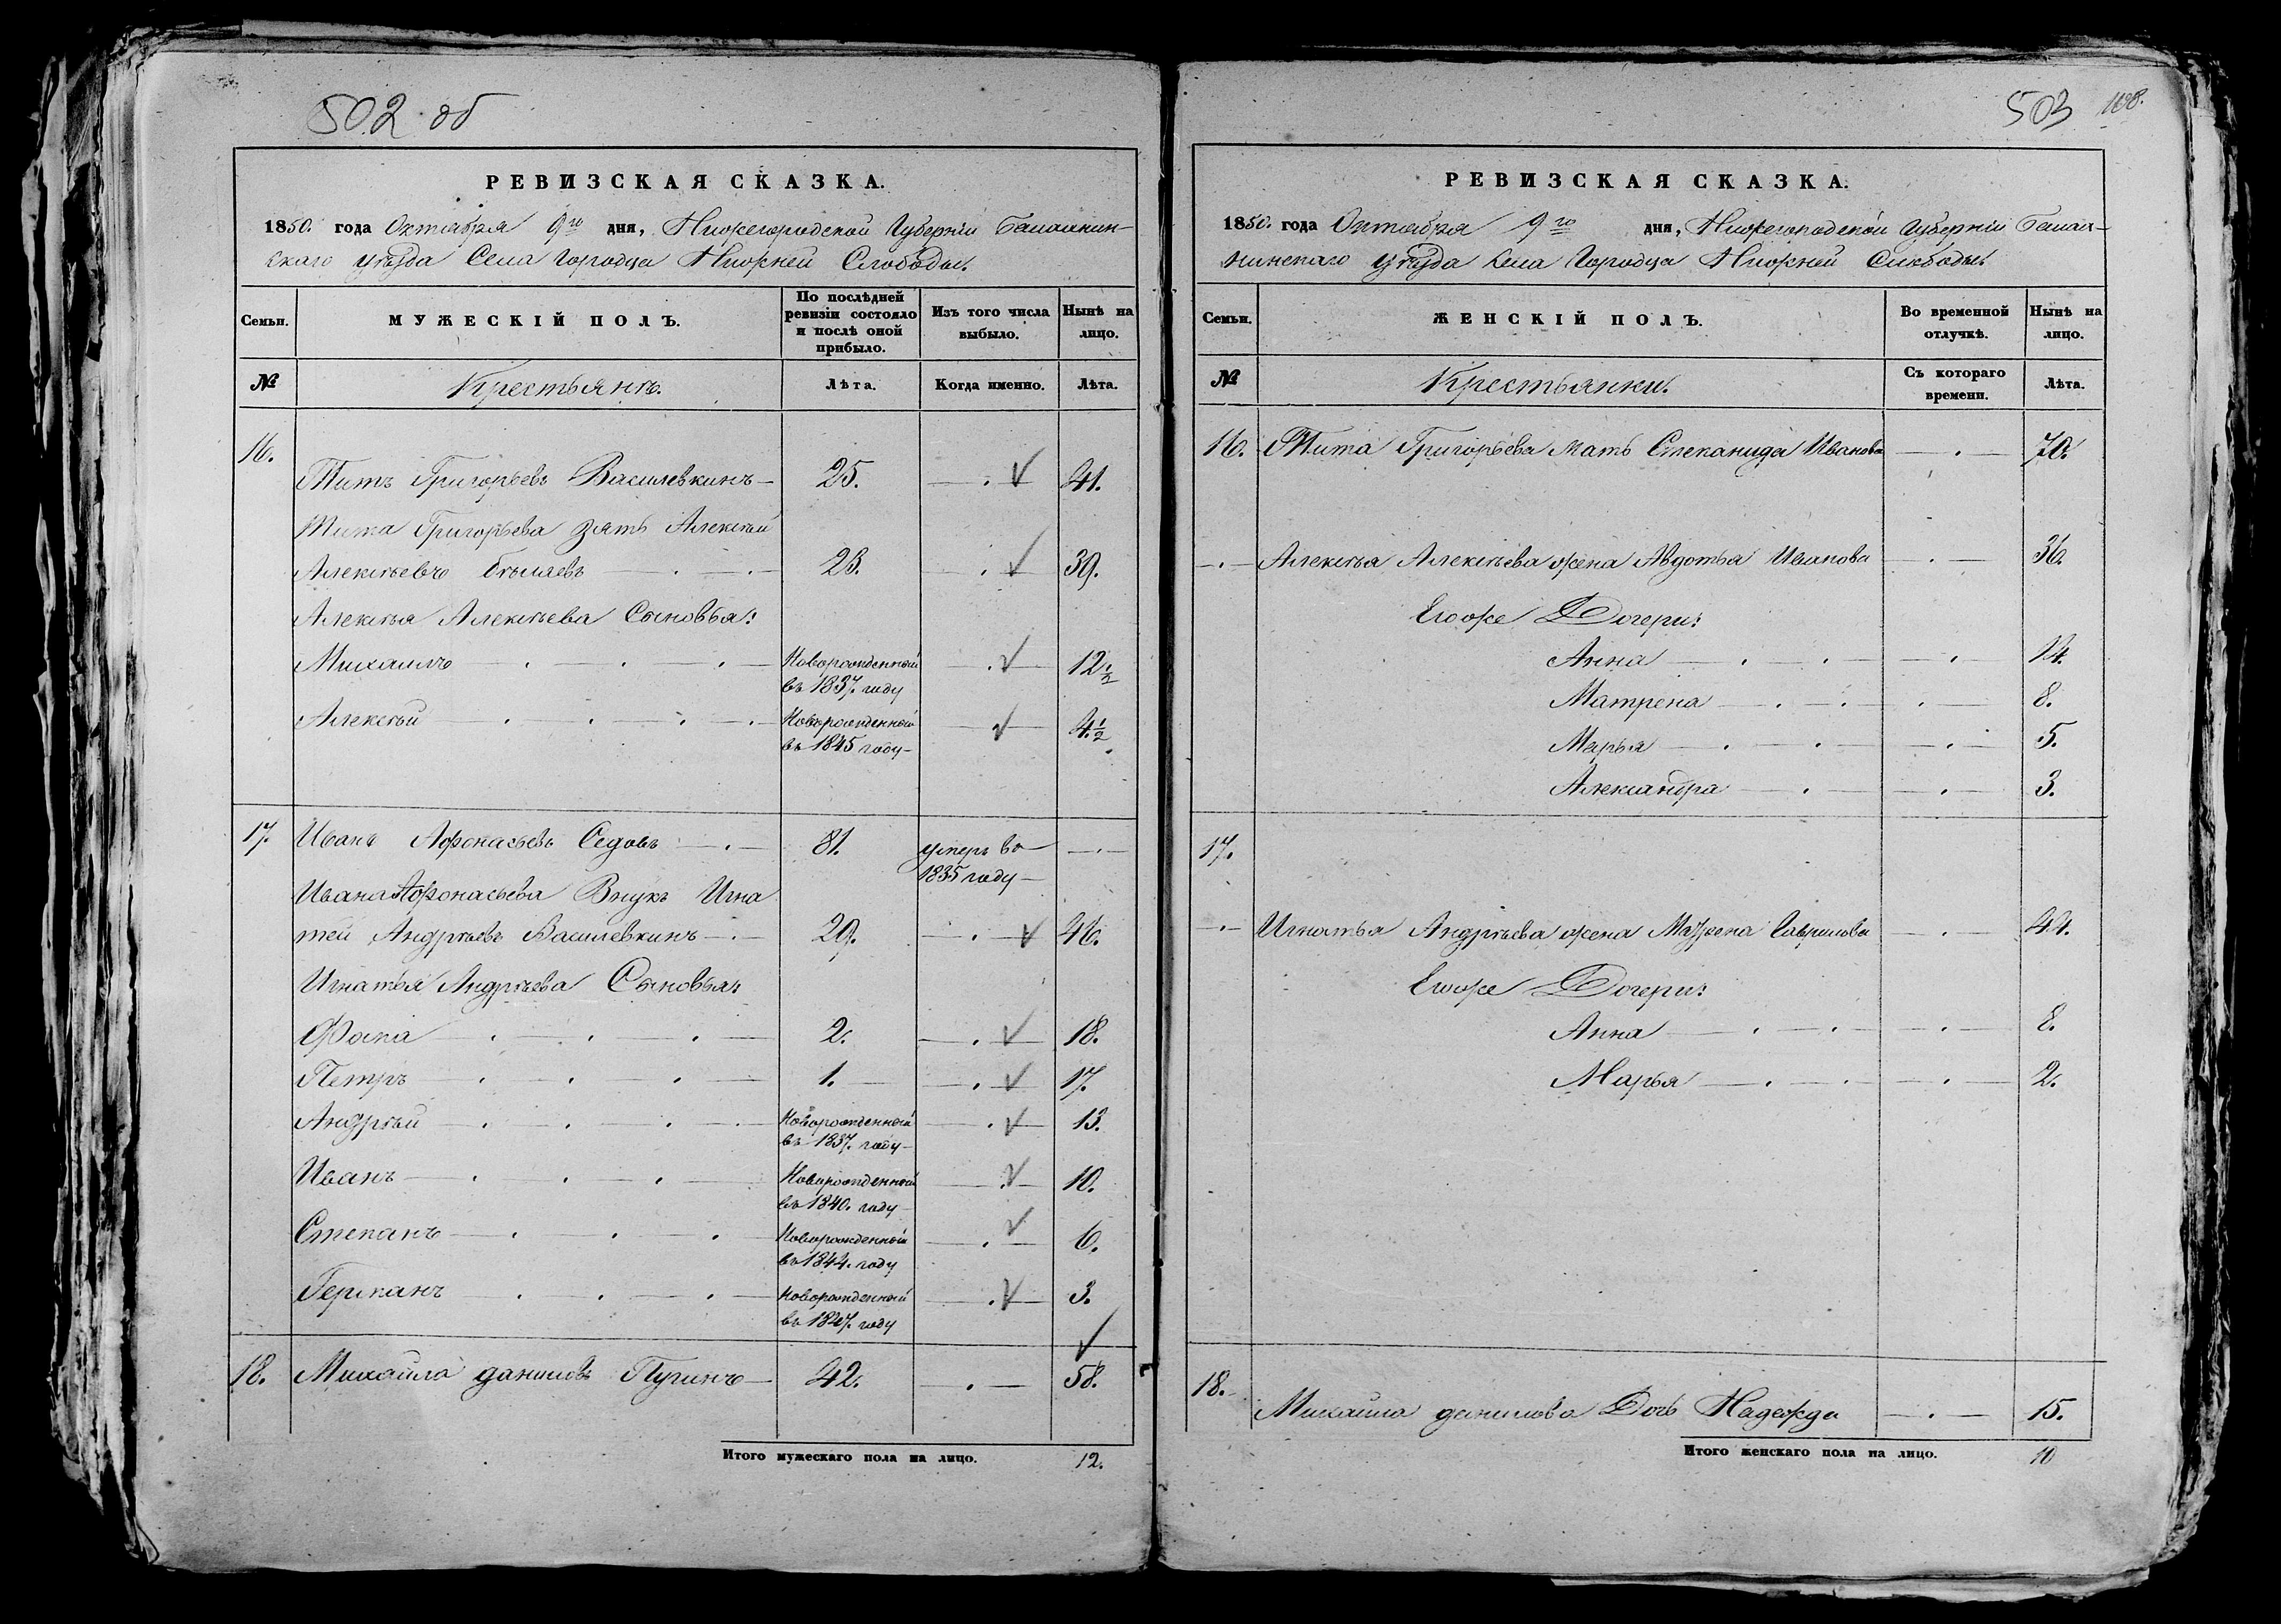 502 об
РЕВИЗСКАЯ СКАЗКА.
1850. года Октября 9го дня, Нижегородской Губернiи Балахнин-
скаго уѣзда Села Городца Нижней Слободы.
Семьи.
МУЖЕСКIЙ ПОЛЪ.
По послѣдней ревизiи состояло и послѣ оной прибыло.
Изъ того числа выбыло.
Нынѣ на лицо.
№
Крестьянъ.
Лѣта.
Когда именно.
Лѣта.
16.
Титъ Григорьевъ Василевкинъ 25. 41.
Тита Григорьева зять Алексѣй
Алексѣевъ Бѣляевъ 23. 39.
Алексѣя Алексѣева Сыновья:
Михаилъ Новорожденный 12 1/2
въ 1837. году
Алексѣй Новорожденный 4 1/2
въ 1845 году
17. Иванъ Афонасьевъ Седовъ 81. умеръ въ
1835 году
Ивана Афонасьева Внукъ Игна
тей Андрѣевъ Василевкинъ 29. 46.
Игнатья Андрѣева Сыновья:
Фома 2. 18.
Петръ 1. 17.
Андрѣй Новорожденный 13.
въ 1837. году
Иванъ Новорожденный 10.
въ 1840. году
Степанъ Новорожденный 6.
въ 1844. году
Германъ Новорожденный 3.
въ 1847. году
18. Михайла даниловъ Пугинъ 42. 58.
Итого мужескаго пола на лицо. 12.
503
РЕВИЗСКАЯ СКАЗКА.
1850. года Октября 9го дня, Нижегородской Губернiи Балах-
нинскаго уѣзда Села Городца Нижней Слободы.
Семьи.
ЖЕНСКIЙ ПОЛЪ.
Во временной отлучкѣ.
Нынѣ на лицо.
№
Крестьянки.
Съ котораго времени.
Лѣта.
16. Тита Григорьева мать Степанида Иванова 70.
Алексѣя Алексѣева жена Авдотья Иванова 36.
Егоже Дочери:
Анна 14.
Матрена 8.
Марья 5.
Александра 3.
17.
Игнатья Андрѣева жена Матрена Гаврилова 44.
Егоже Дочери:
Анна 8.
Марья 2.
18.
Михайла данилова Дочь Надежда 15.
Итого женскаго пола на лицо. 10